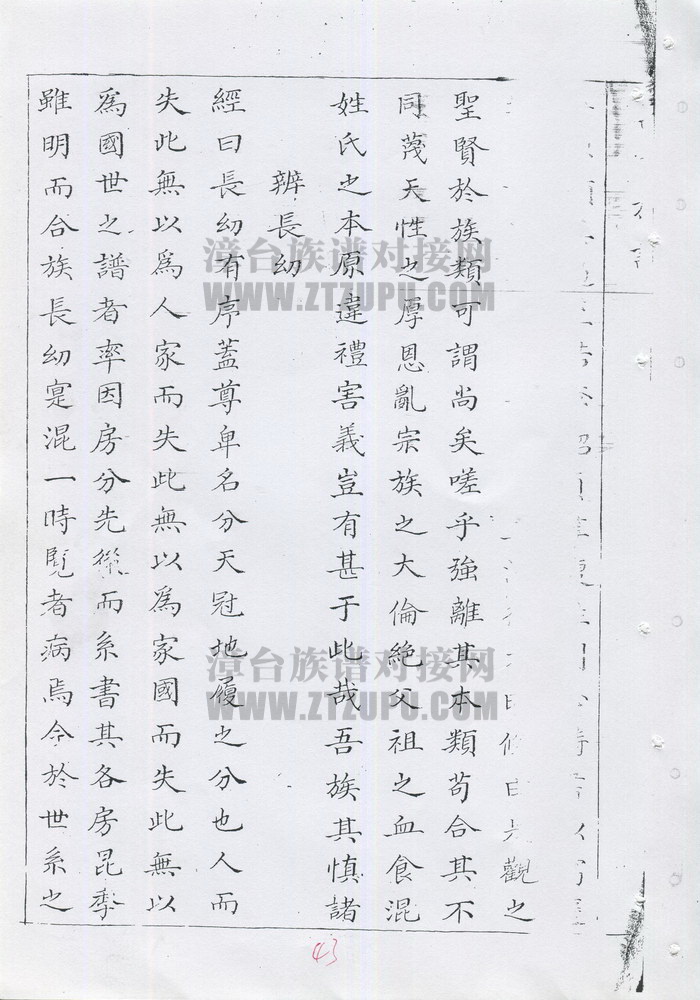 觀之
聖賢於族類可謂尚矣嗟乎強離其本類苟合其不
同蔑天性之厚恩亂宗族之大倫絕父祖之血食混
姓氏之本原違禮害義豈有甚于此哉吾族其慎諸
辨長幼
經曰長幼有序蓋尊卑名分天冠地履之分也人而
失此無以爲人家而失此無以爲家國而失此無以
爲國世之譜者率因房分先後而系書其各房昆季
雖明而合族長幼寔混一時覧者病焉今於世系之
43
漳台族谱对接网
WWW.ZTZUPU.COM
漳台族谱对接网
WWW.ZTZUPU.COM